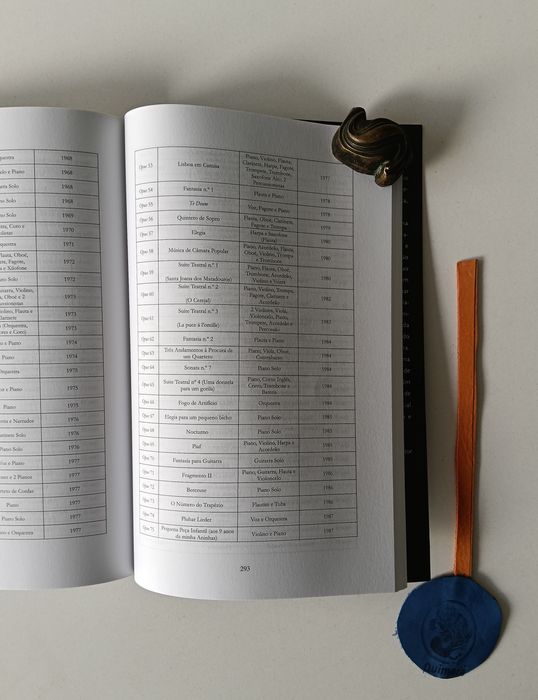 questra 1968
olo e Piano 1968
Solo 1968
o Solo 1968
no Solo 1969
o, Coro e
olistas 1970
questra 1971
lauta, Oboé,
, Fagote,
a e Xilofone 1972
ano Solo 1972
uitarra, Violino,
o, Oboé e 2
ussionistas 1973
olino, Flauta e
larinete 1973
(Orquestra,
ores e Coro) 1973
o e Piano 1974
e Piano 1974
Orquestra 1975
z e Piano 1975
Piano 1975
e Narrador 1976
Solo 1976
ano Solo 1976
e Piano 1977
e 2 Pianos 1977
rteto de Cordas 1977
Piano 1977
Piano Solo 1977
no e Orquestra 1977
Opus 53 Lisboa em Camisa Piano, Violino, Flauta,
Clarinete, Harpa, Fagote,
Trompete, Trombone,
Saxofone Alto, 2
Percussionistas 1977
Opus 54 Fantasia n.º 1 Flauta e Piano 1978
Opus 55 Te Deum Voz, Fagote e Piano 1978
Opus 56 Quinteto de Sopro Flauta, Oboé, Clarinete,
Fagote e Trompa 1979
Opus 57 Elegia Harpa e Saxofone
(Flauta) 1980
Opus 58 Música de Câmara Popular Piano, Acordeão, Flauta,
Oboé, Violino, Trompa
e Trombone 1980
Opus 59 Suite Teatral n.º 1
(Santa Joana dos Matadouros) Piano, Flauta, Oboé,
Trombone, Acordeão,
Violino e Viola 1980
Opus 60 Suite Teatral n.º 2
(O Cereja) Piano, Violino, Trompa,
Fagote, Clarinete e
Acordeão 1982
Opus 61 Suite Teatral n.º 3
(La puce à l'oreille) 2 Violinos, Viola,
Violoncelo, Piano,
Trompete, Acordeão e
Percussão 1983
Opus 62 Fantasia n.º 2 Flauta e Piano 1984
Opus 63 Três Andamentos à Procura de
um Quarteto Piano, Viola, Oboé,
Contrabaixo 1984
Opus 64 Sonata n.º 7 Piano Solo 1984
Opus 65 Suite Teatral n.º 4 (Uma donzela
para um gorila) Piano, Corne Inglês,
Cravo, Trombone e
Bateria 1984
Opus 66 Fogo de Artifício Orquestra 1984
Opus 67 Elegia para um pequeno bicho Piano Solo 1985
Opus 68 Nocturno Piano Solo 1985
Opus 69 Piaf Piano, Violino, Harpa e
Acordeão 1985
Opus 70 Fantasia para Guitarra Guitarra Solo 1985
Opus 71 Fragmento II Piano, Guitarra, Flauta e
Violoncelo 1986
Opus 72 Berceuse Piano Solo 1986
Opus 73 O Número do Trapézio Flautim e Tuba 1986
Opus 74 Pluhar Lieder Voz e Orquestra 1987
Opus 75 Pequena Peça Infantil (aos 9 anos
da minha Aninhas) Violino e Piano 1987
293